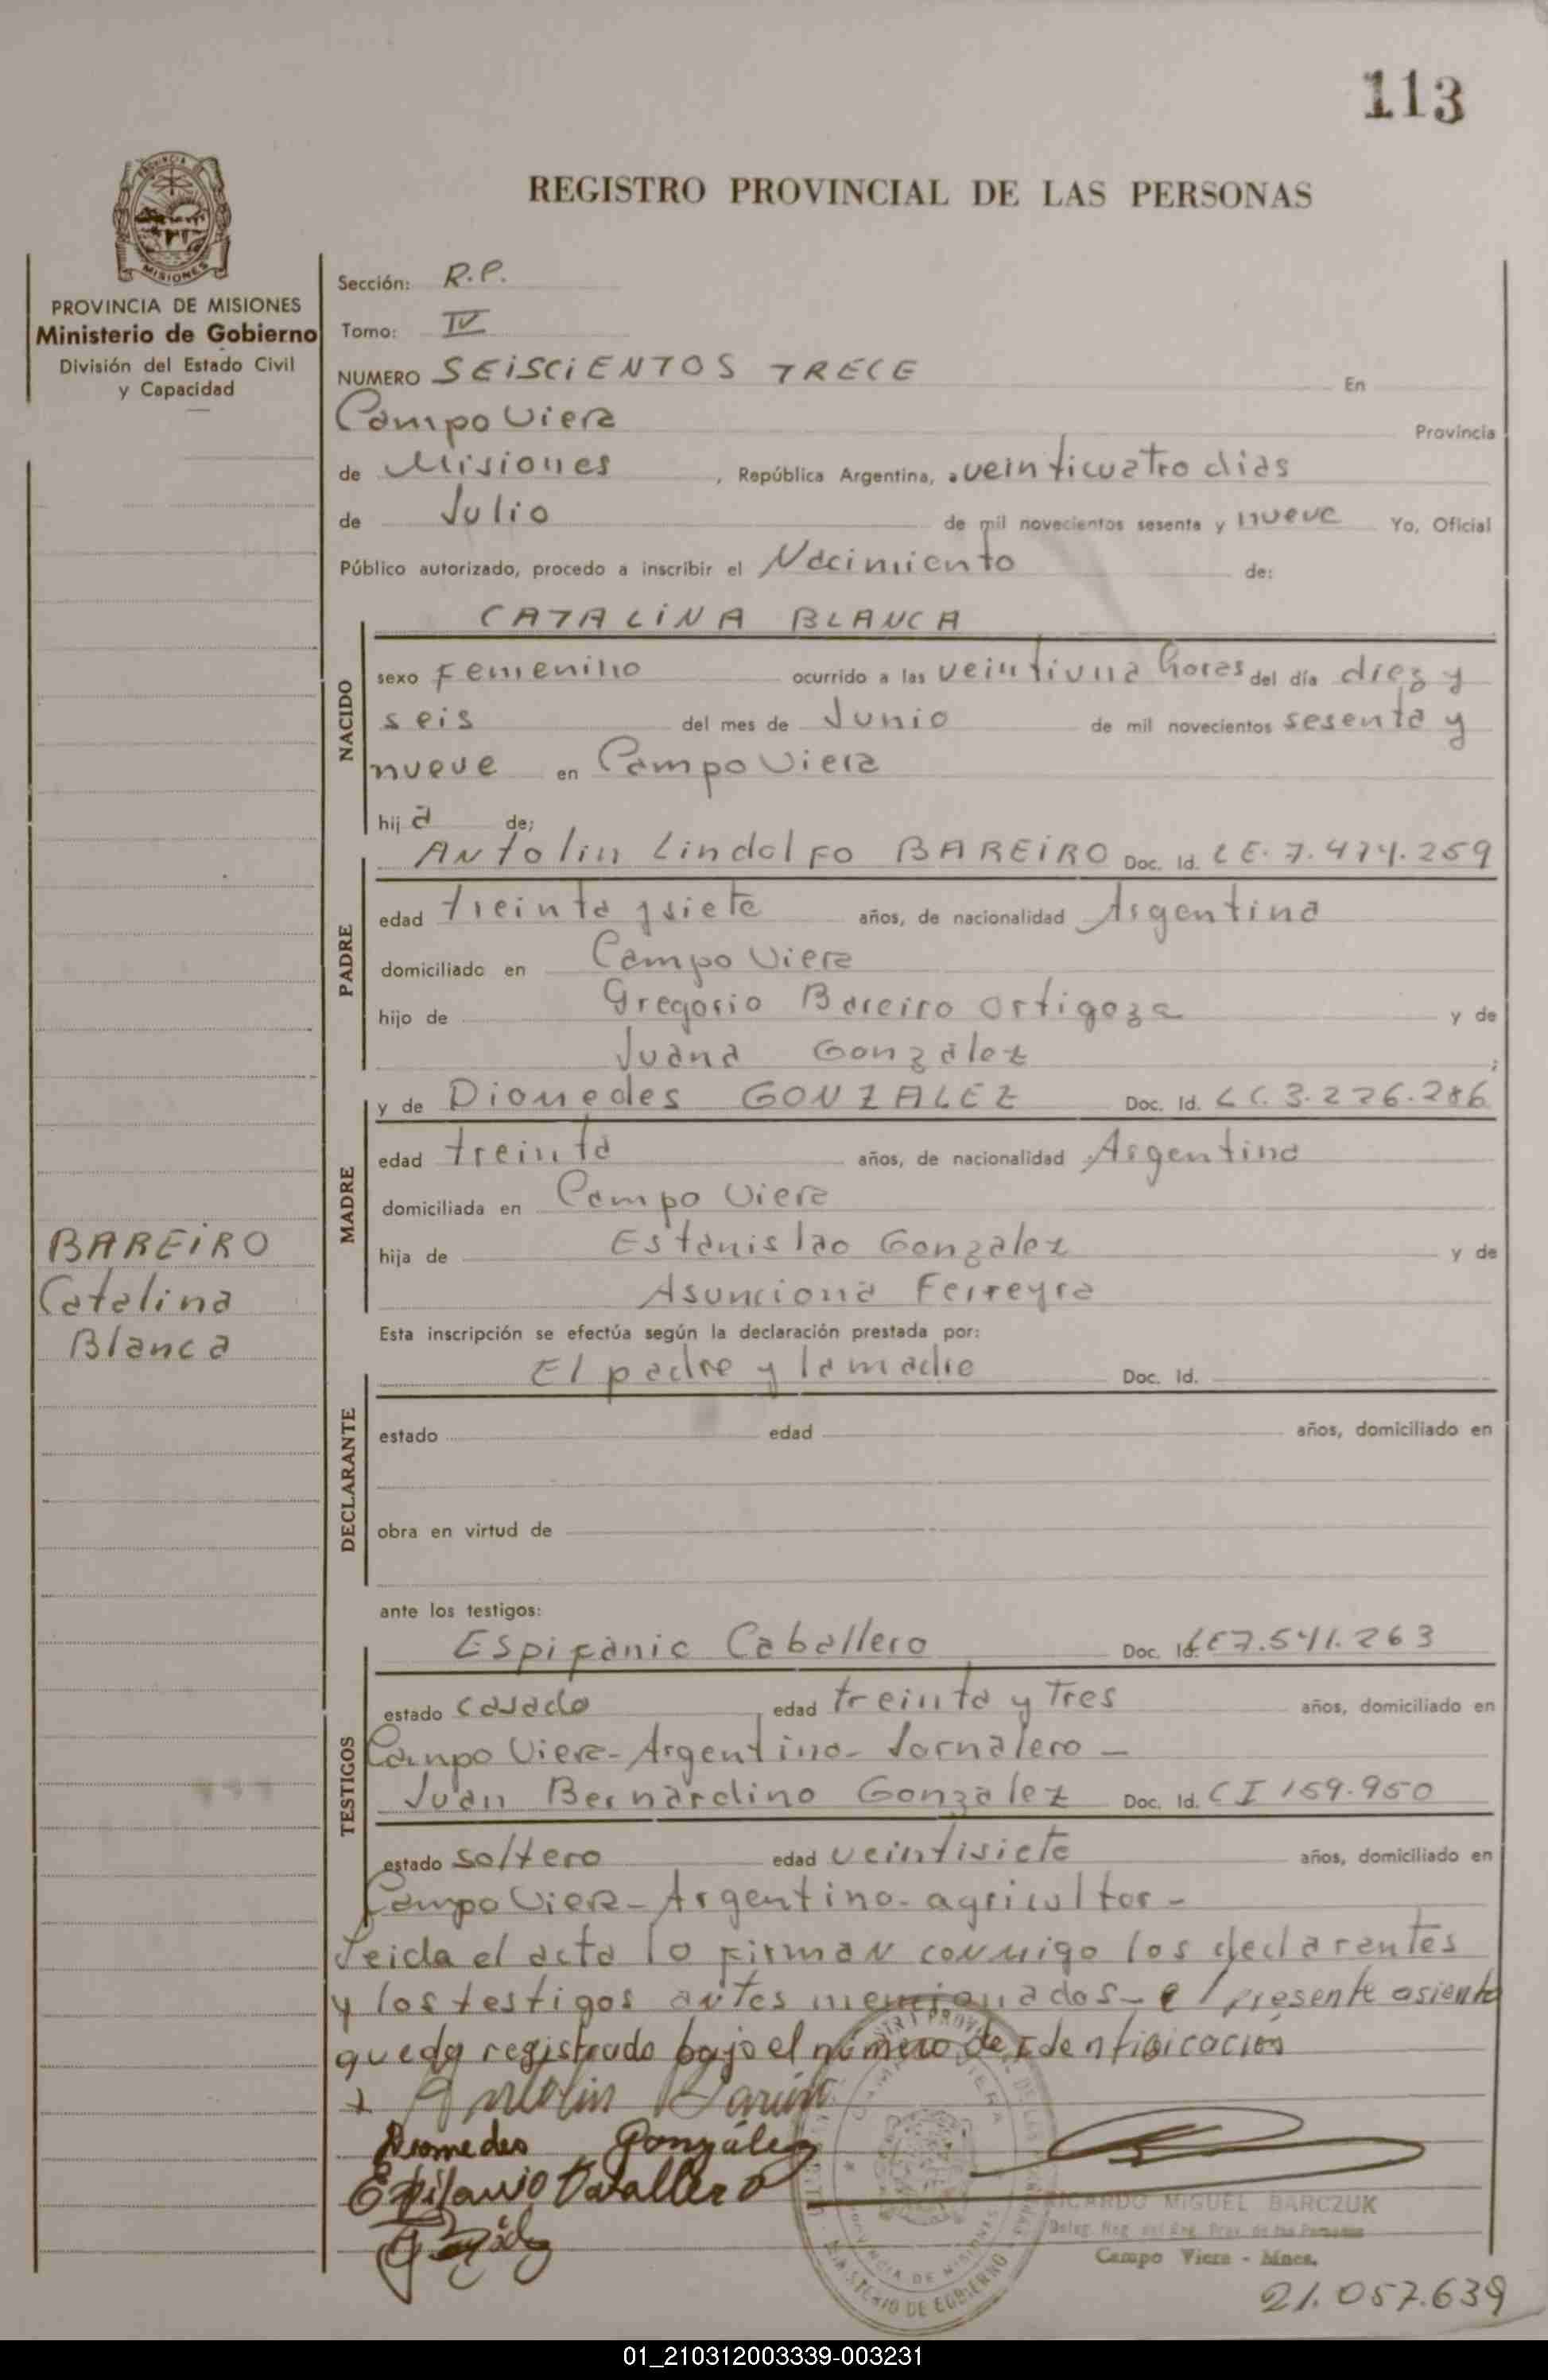 113
REGISTRO PROVINCIAL DE LAS PERSONAS
PROVINCIA DE MISIONES
Ministerio de Gobierno
División del Estado Civil
y Capacidad
Sección: R.P.
Tomo: IV
NUMERO SEISCIENTOS TRECE En
Campo Viera Provincia
de Misiones, República Argentina, a veinticuatro dias
de Julio de mil novecientos sesenta y nueve Yo, Oficial
Público autorizado, procedo a inscribir el Nacimiento de:
NACIDO
CATALINA BLANCA
sexo Femenino ocurrido a las veintiuna horas del día diez y
seis del mes de Junio de mil novecientos sesenta y
nueve en Campo Viera
hija de;
PADRE
Antolin Lindolfo BAREIRO Doc. Id. LE. 7.474.259
edad treinta y siete años, de nacionalidad Argentina
domiciliado en Campo Viera
hijo de Gregorio Bareiro Ortigoza y de
Juana Gonzalez ;
MADRE
y de Diomedes GONZALEZ Doc. Id. LC. 3.226.286
edad treinta años, de nacionalidad Argentina
domiciliada en Campo Viera
hija de Estanislao Gonzalez y de
Asunciona Ferreyra
BAREIRO
Catalina
Blanca
Esta inscripción se efectúa según la declaración prestada por:
DECLARANTE
El padre y la madre Doc. Id.
estado edad años, domiciliado en
obra en virtud de
ante los testigos:
TESTIGOS
Espifanio Caballero Doc. Id. LE 7.541.263
estado casado edad treinta y Tres años, domiciliado en
Campo Viera - Argentino - Jornalero -
Juan Bernardino Gonzalez Doc. Id. CI 159.950
estado soltero edad veintisiete años, domiciliado en
Campo Viera - Argentino - agricultor -
Leida el acta lo firman conmigo los declarantes
y los testigos antes mencionados - el presente asiento
queda registrado bajo el número de Identificación
Antolin
Diomedes González
Epifanio Caballero
RICARDO MIGUEL BARCZUK
Campo Viera - Mnes.
MINISTERIO DE GOBIERNO
PROVINCIA DE MISIONES
21.057.639
01_210312003339-003231